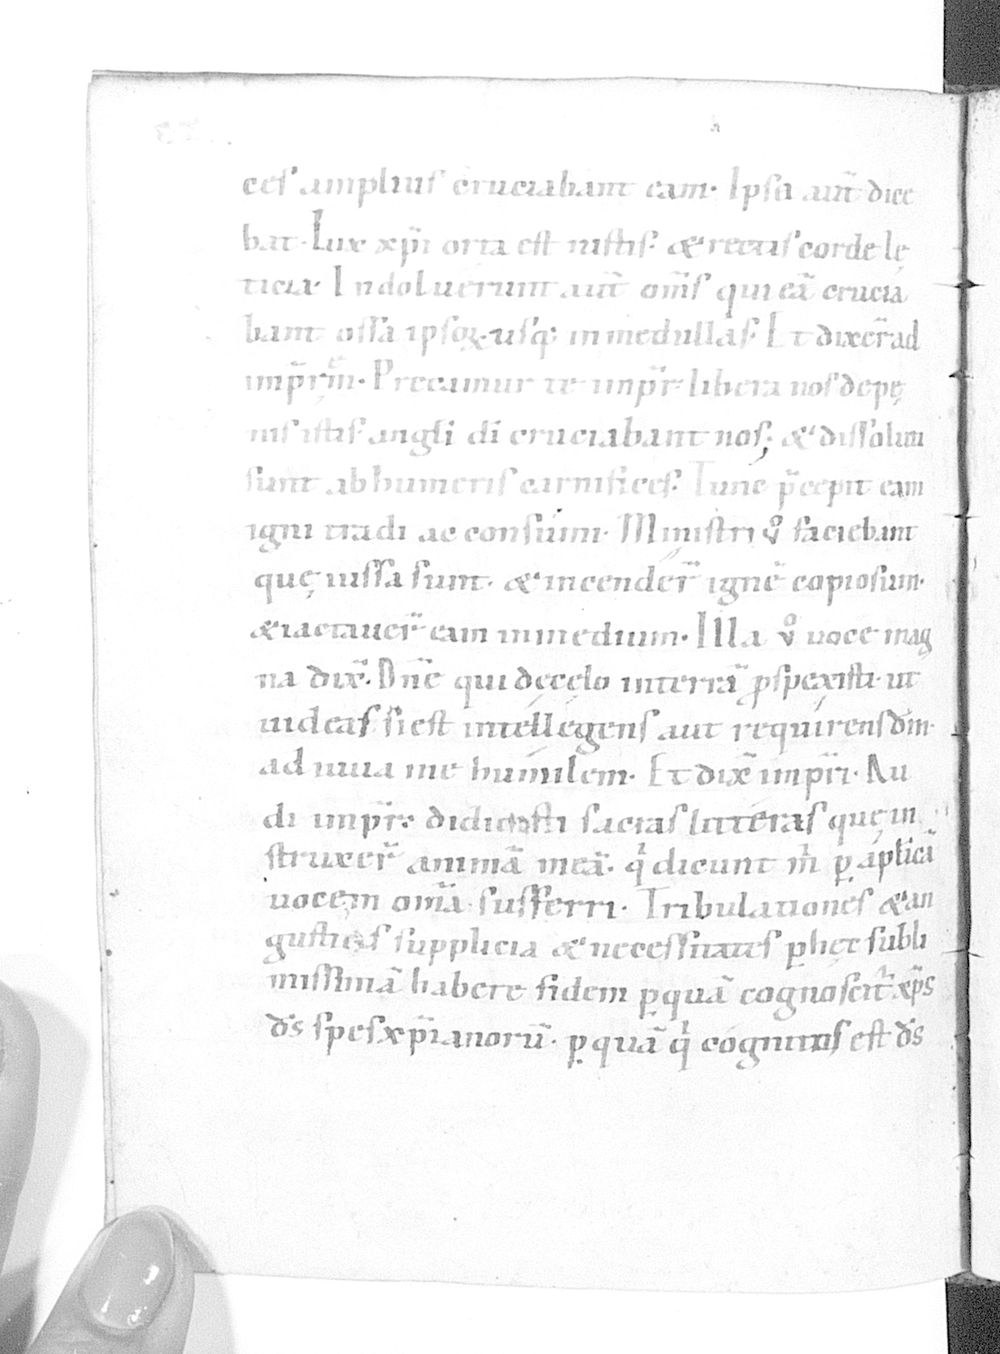 ces amplius cruciabant eam. Ipsa aut̄ dice
bat. Lux xp̄i orta est iustis. & rectis corde lę
ticia. Indoluerunt aut̄ om̄s qui eā crucia
bant ossa ipsoꝝ usq; in medullas. Et dixer̄ ad
imp̄r̄m. Precamur te imp̄r. libera nos de pę
nis istis. angli di cruciabant nos; & dissoluti
sunt ab humeris carnifices. Tunc p̄cepit eam
igni tradi ac consumi. Ministri v̊ faciebant
quę iussa sunt. & incender̄ ignē copiosum.
& iactauer̄ eam in medium. Illa v̊ uoce mag
na dix̄. Dn̄e qui de cęlo in terrā ꝓspexisti ut
uideas si est intellegens aut requirens dm̄.
adiuua me humilem. Et dix̄ imp̄ri. Au
di imp̄r. didicisti sacras litteras quę in
struxer̄ animā meā. qͥ dicunt m̄ ꝑ ap̄licā
uocem om̄a sufferri. Tribulationes & an
gustias supplicia & necessitates ꝑ hęc subli
missimā habere fidem ꝑ quā cognoscit̄ xp̄s
d̄s spes xp̄ianorū. ꝑ quā qͥ cognitus est d̄s